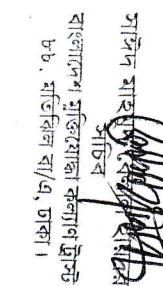 সচিব
বাংলাদেশ মুক্তিযোদ্ধা কল্যাণ ট্রাস্ট
৮৮, মতিঝিল বা/এ, ঢাকা।